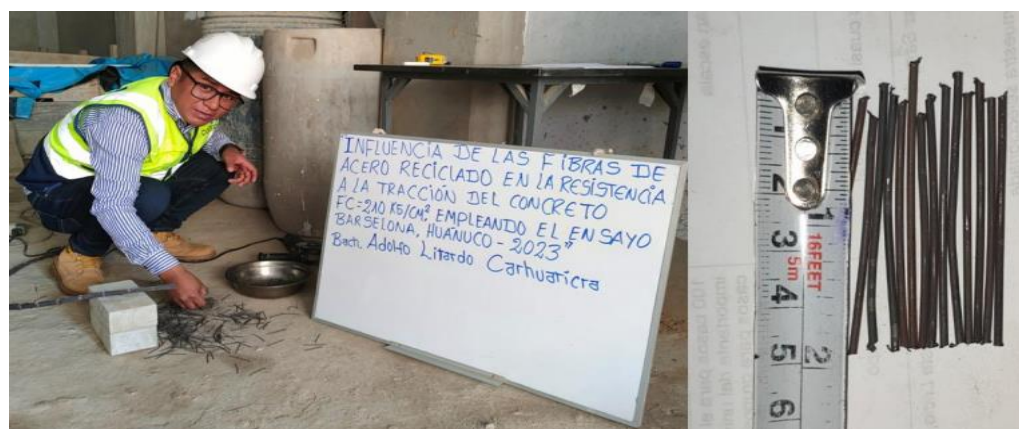 "INFLUENCIA DE LAS FIBRAS DE
ACERO RECICLADO EN LA RESISTENCIA
A LA TRACCIÓN DEL CONCRETO
FC=210 KG/CM², EMPLEANDO EL ENSAYO
BARSELONA, HUÁNUCO - 2023"
Bach. Adolfo Lirardo Carhuaricra
1
2
3
4
5
6
1
2
16FEET
5m